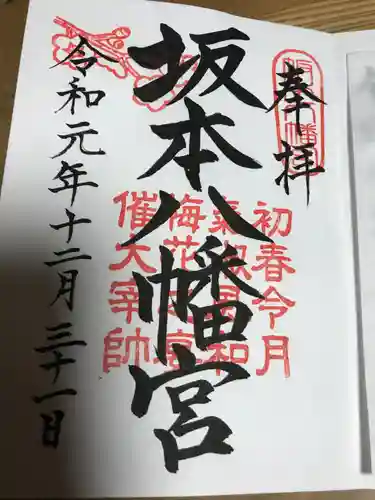 奉拝
坂本八幡宮
令和元年十二月三十一日
初春令月
氣淑風和
梅花之宴
催大宰帥